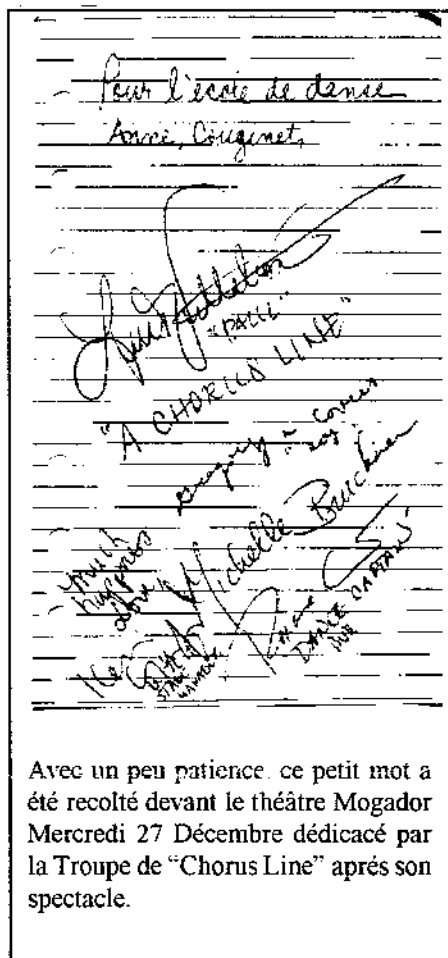 Pour l'école de danse
Anne, Couginet,
"PAUL"
"A CHORUS LINE"
Michelle Bruckner
much
happiness
love
Ken
STAGE
MANAGER
DANCE CAPTAIN
Avec un peu patience ce petit mot a
été recolté devant le théâtre Mogador
Mercredi 27 Décembre dédicacé par
la Troupe de "Chorus Line" aprés son
spectacle.